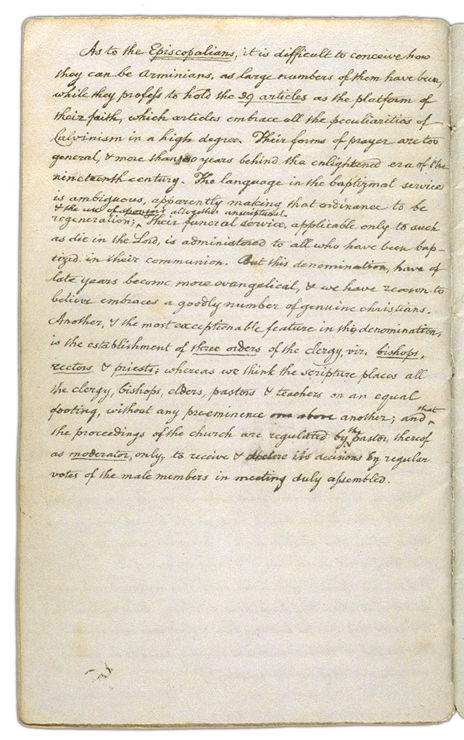 As to the Episcopalians, it is difficult to conceive how
they can be Arminians, as large numbers of them have been,
while they profess to hold the 39 articles as the platform of
their faith, which articles embrace all the peculiarities of
Calvinism in a high degree. Their forms of prayer are too
general, & more than 100 years behind the enlightened era of the
nineteenth century. The language in the baptismal service
is ambiguous, apparently making that ordinance to be
& the use of sponsors altogether unscriptural.
regeneration; ^ Their funeral service, applicable only to such
as die in the Lord, is administered to all who have been bap-
tized in their communion. But this denomination, have of
late years become more evangelical, & we have reason to
believe embraces a goodly number of genuine christians.
Another, & the most exceptionable feature in this denomination,
is the establishment of three orders of the clergy, viz. bishops,
rectors & priests; whereas we think the scripture places all
the clergy, bishops, elders, pastors & teachers on an equal
that
footing, without any preeminence one above another; and ^
the
the proceedings of the church are regulated by ^ pastor thereof
as moderator, only, to receive & declare its decisions by regular
votes of the male members in meeting duly assembled.